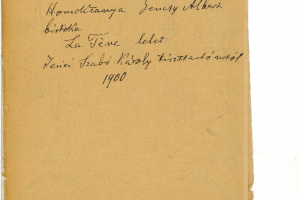 Homoktanya Jenesy Albert
birtoka
La Téne lelet
Jenei Szabó Károly tiszttartó úrtól
1900